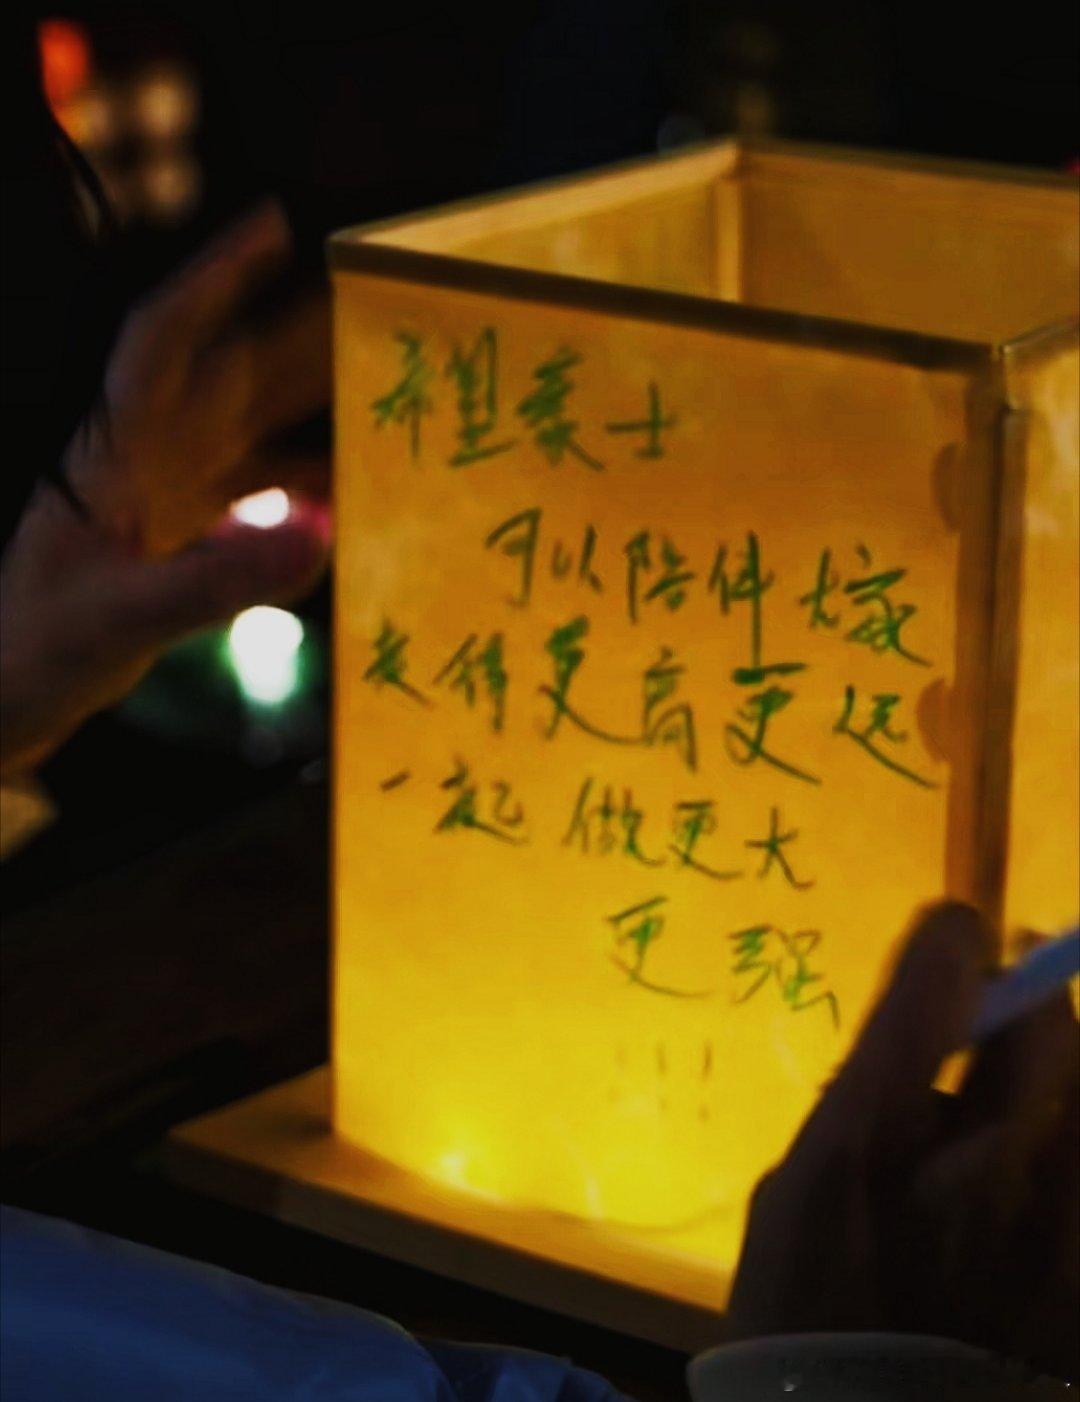 希望莱士
可以陪伴大家
走得更高更远
一起做更大
更强
!!!